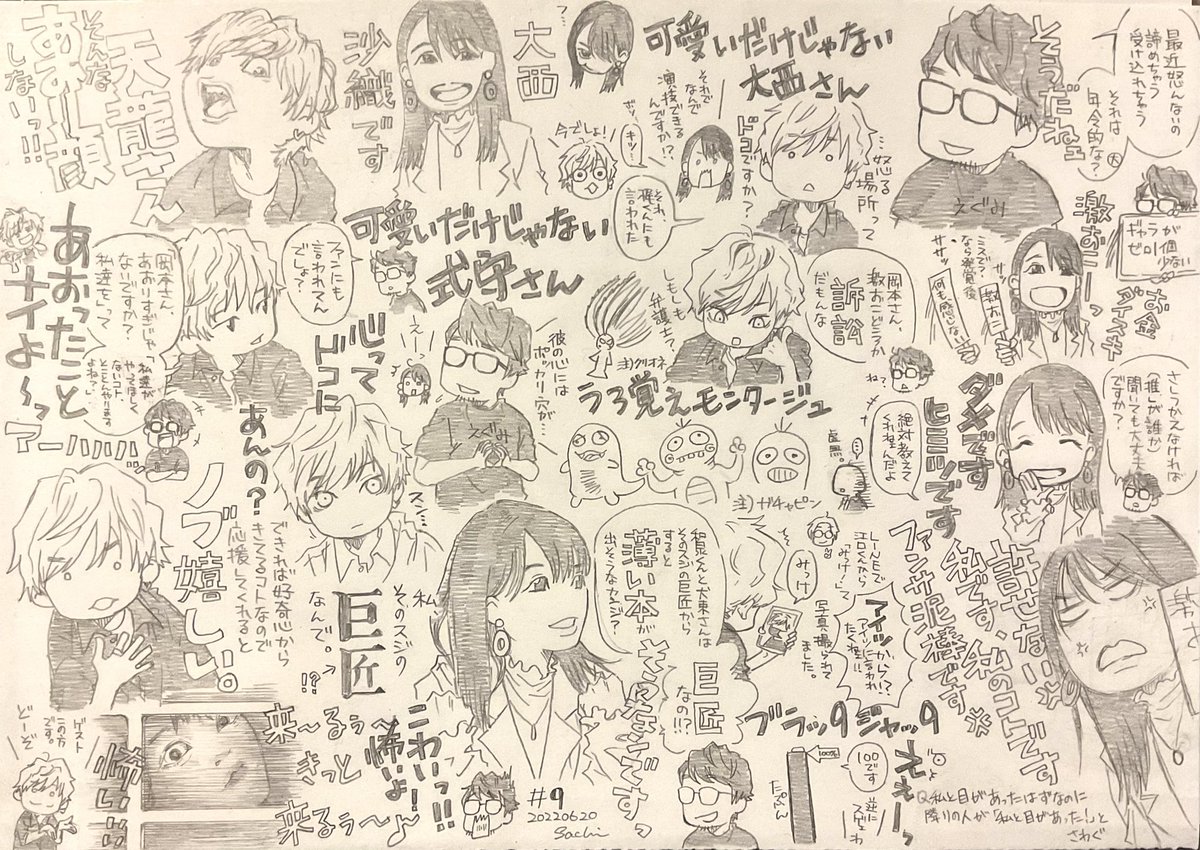 天龍さん
そんな
あおり顔
しないっ!!
沙織です
大西
可愛いだけじゃない
大西さん
それで
なんで
演技できる
んですか!?
キッ!
今でしょ!
…怒る
場所って
ドコですか?
そうだねェ
えぐみ
最近怒んないの
諦めちゃう
受け入れちゃう
それは
年令的な?
激おこーっ
ギャラが
ゼロ1個
少ない
お金
ダイスキ
ミスで?
何も感じない
可愛いだけじゃない
式守さん
ファンにも
言われてん
でしょ?
言われた
あおったこと
ナイよ〜っ
アーハハハッ
岡本さん、
あおりすぎじゃ
ないですか?
私達をって
「私達が
やってほしく
ないコト、
とことんやります
よね?」
心って
ドコに
あんの?
えー
えぐみ
彼の心には
ポッカリ穴が…
しもしも
弁護士?
訴訟
岡本さん、
だもんな
ね?
注)クリオネ
うろ覚えモンタージュ
注)ガチャピン
虚無。
絶対教えて
くれないんだよ
ダメです
ヒミツです
さしつかえなければ
「推し」が誰か
聞いても大丈夫
ですか?
ノブ嬉しい。
できれば好奇心から
きてるコトなので
応援してくれると
スン…
私、
そのスジの
巨匠
なんで。
!?
和泉くんと大東さんは
そのスジの巨匠から
すると
薄い本が
出そうなカンジ?
そんなカンジですっ
巨匠
なの!!?
みっけ
江口くんから
「みっけ!」って
写真撮られて
ました。
アイツから!?
許せない
私です、私のコトです
ファンサ泥棒です
ブラッ9ジャッ9
100%
100です
えぇーっ
たっぷん
Q.私と目があったはずなのに
隣りの人が「私と目があった!」と
さわぐ
ゲスト
この方
です。
どーぞ
怖いい
来〜るぅ
きっと
来るぅ〜♪
こわいっ!!
怖いよ!
#9
20220620
Sachi